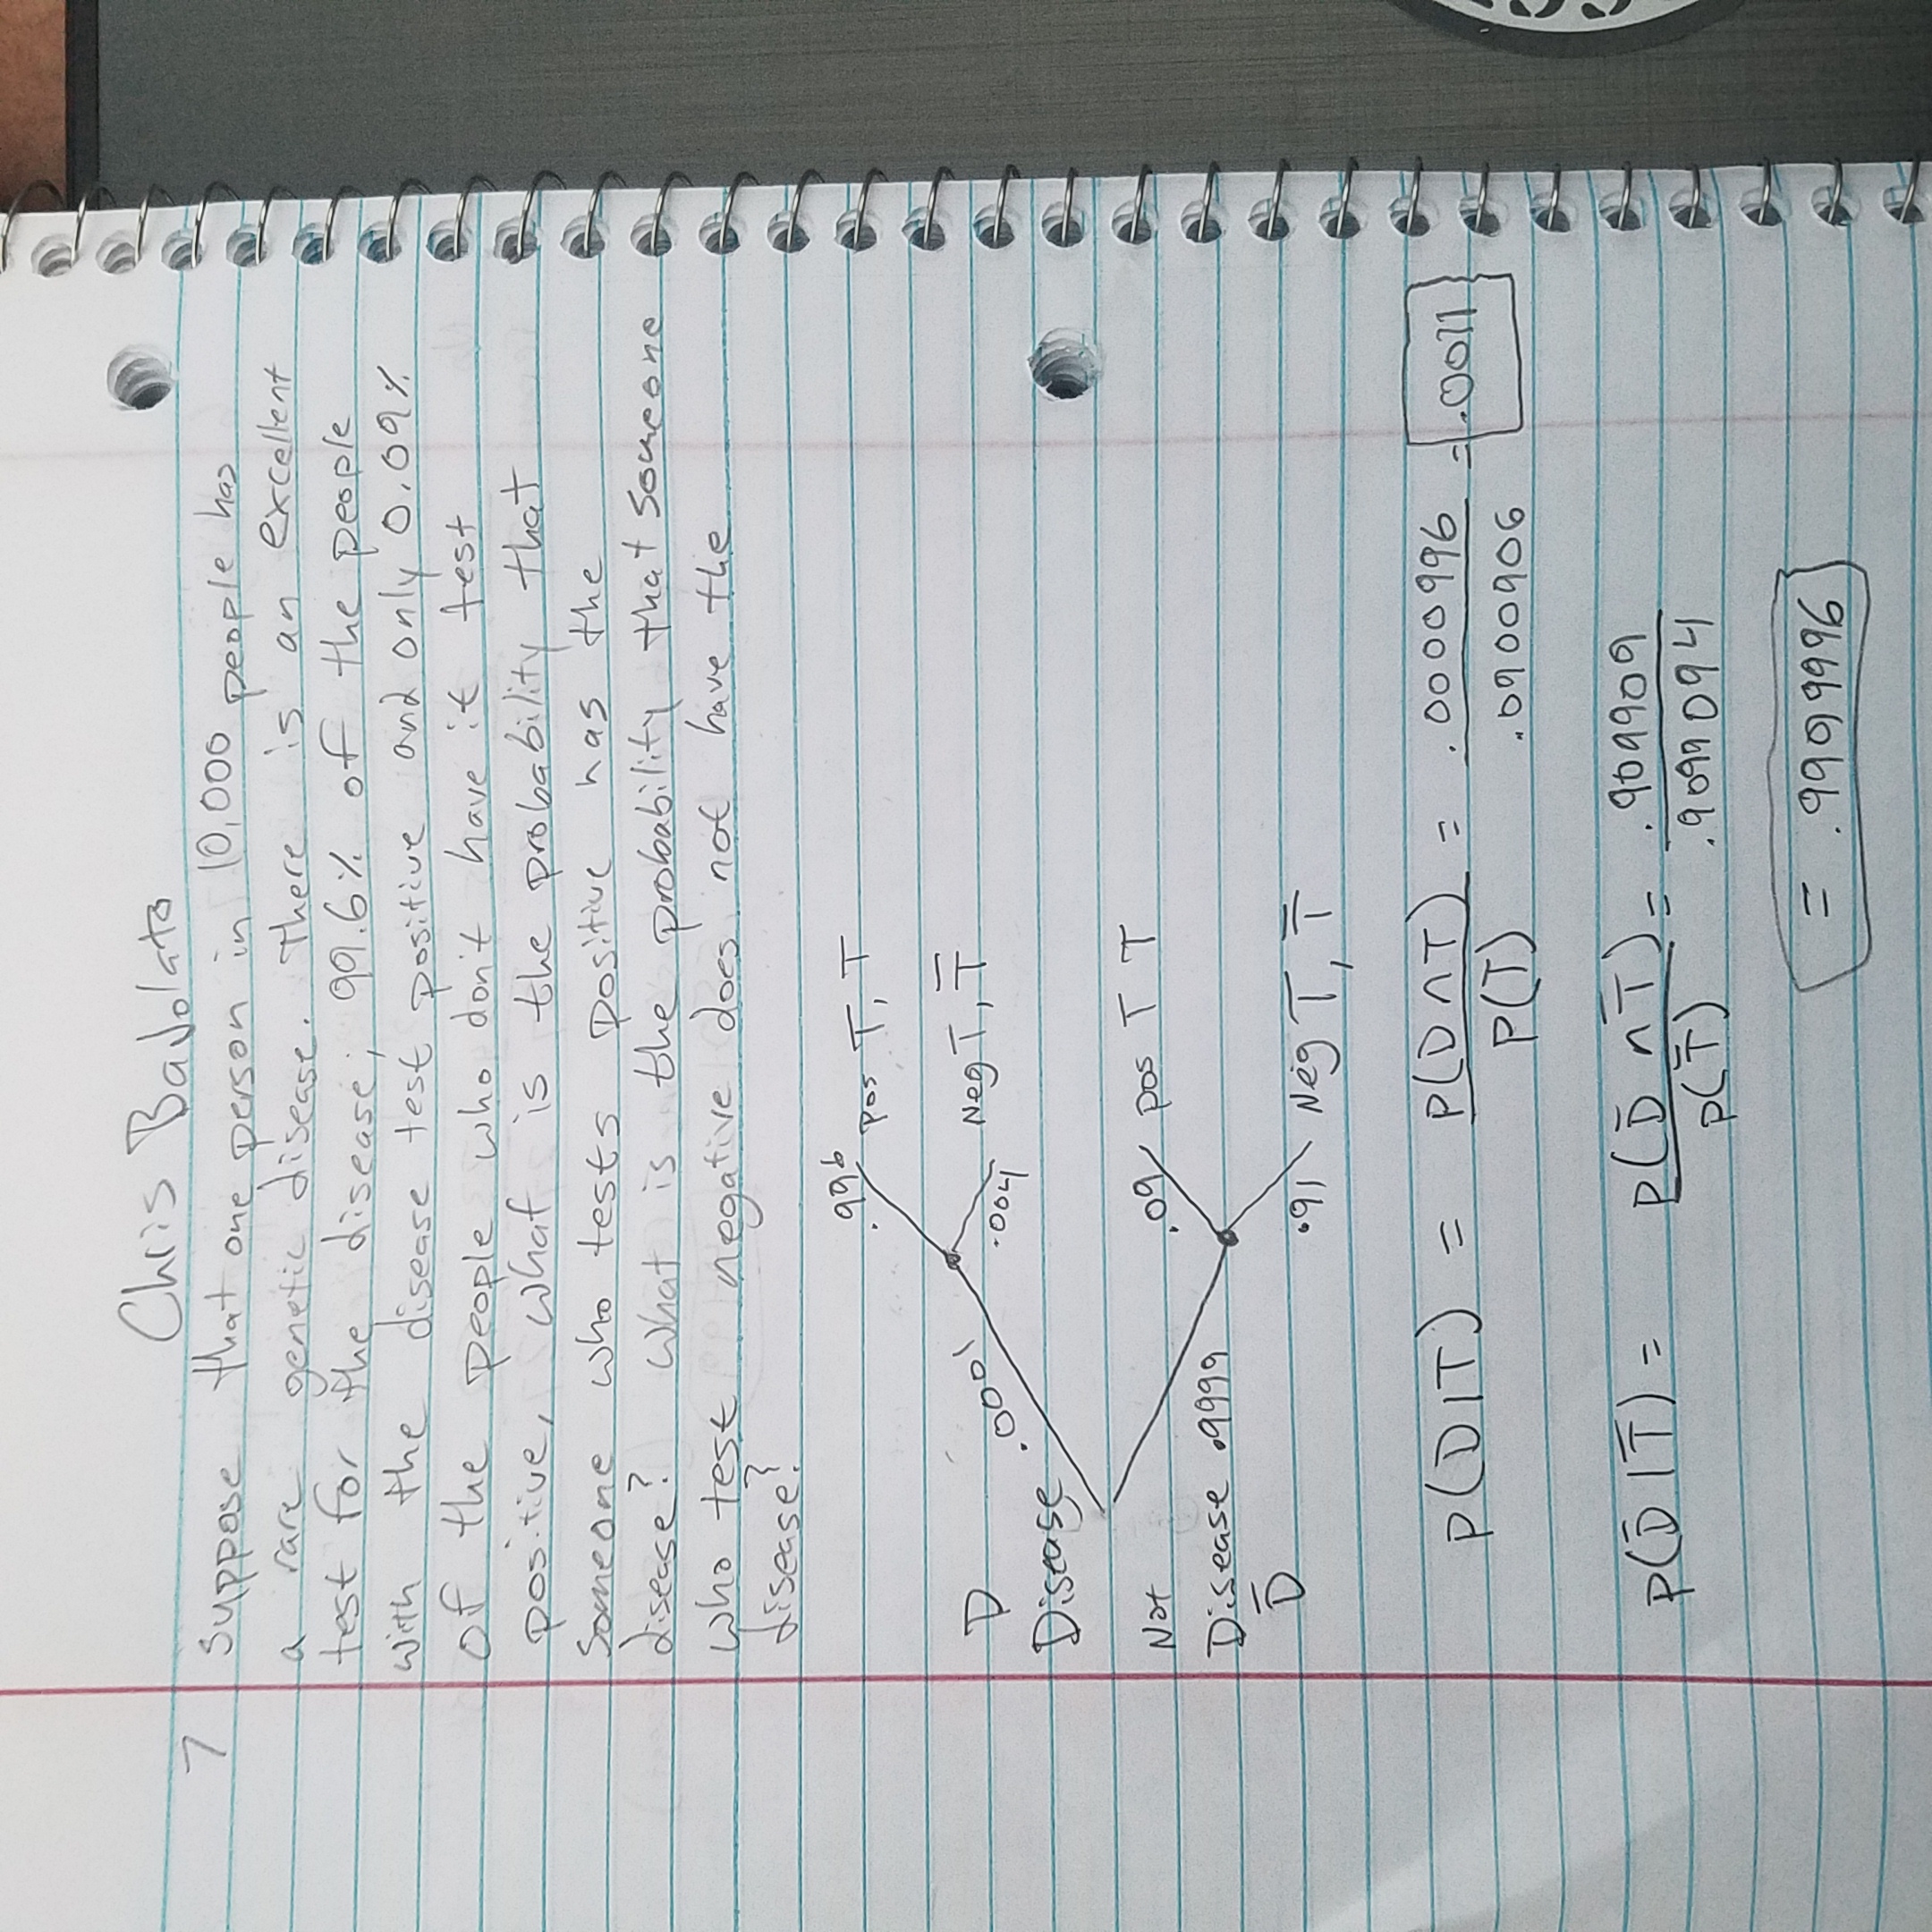 Chris Badolato
7 Suppose that one person in 10,000 people has
a rare genetic disease. There is an excellent
test for the disease; 99.6% of the people
with the disease test positive and only 0.09%
of the people who don't have it test
positive, what is the probability that
Someone who tests positive has the
disease? What is the probability that someone
who test negative does not have the
disease?
.996 pos T, T
D .0001 .004 Neg T, T̅
Disease
Not .09 pos T T
Disease .9999
D̅
.91 Neg T, T̅
P(D|T) = P(D∩T) / P(T) = .0000996 / .0900906 = .0011
P(D̅|T̅) = P(D̅ ∩ T̅) / P(T̅) = .909909 / .9099094
= .9999996